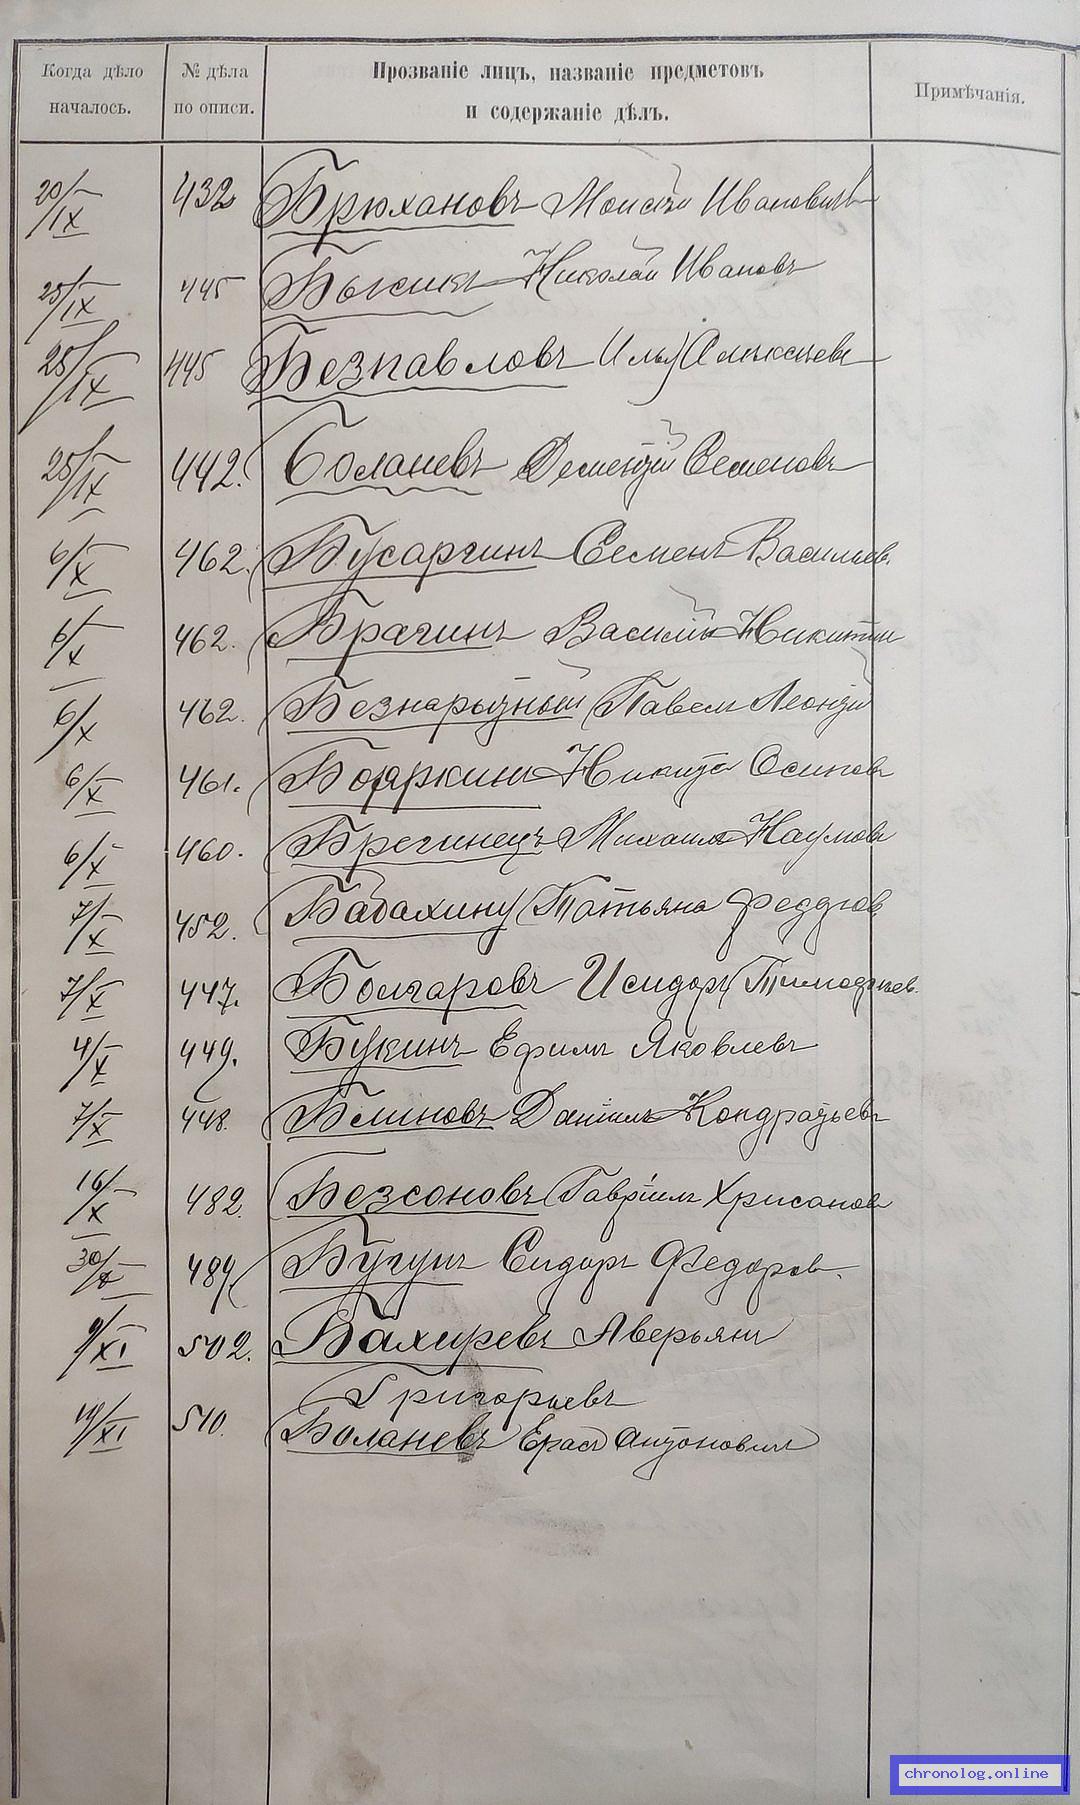 Когда дѣло началось.
№ дѣла по описи.
Прозваніе лицъ, названіе предметовъ
и содержаніе дѣлъ.
Примѣчанія.
20/IX 432 Брюхановъ Моисѣй Ивановичъ
25/IX 445 Быкикъ Николай Ивановъ
25/IX 445 Безпавловъ Илья Алексѣевъ
25/IX 442. Боланевъ Дементій Семеновъ
6/X 462. Бусаргинъ Семенъ Васильев.
6/X 462. Брагинъ Василій Никитин
6/X 462. Безнарытный Павелъ Леонтій
6/X 461. Бояркинъ Никита Осипов
6/X 460. Брегинецъ Михаилъ Наумов
7/X 452. Бабахину Татьяна Федоров
7/X 447. Болгаровъ Исидоръ Тимофѣев.
4/X 449. Букинъ Ефимъ Яковлевъ
7/X 448. Блиновъ Даніилъ Кондратьевъ
16/X 482. Безсоновъ Гавріилъ Хрисанов
30/X 489. Бугунъ Сидоръ Федоров.
9/XI 502. Бахиревъ Аверьянъ
Григорьевъ
19/XI 510. Боланевъ Ерастъ Антоновичъ
chronolog.online